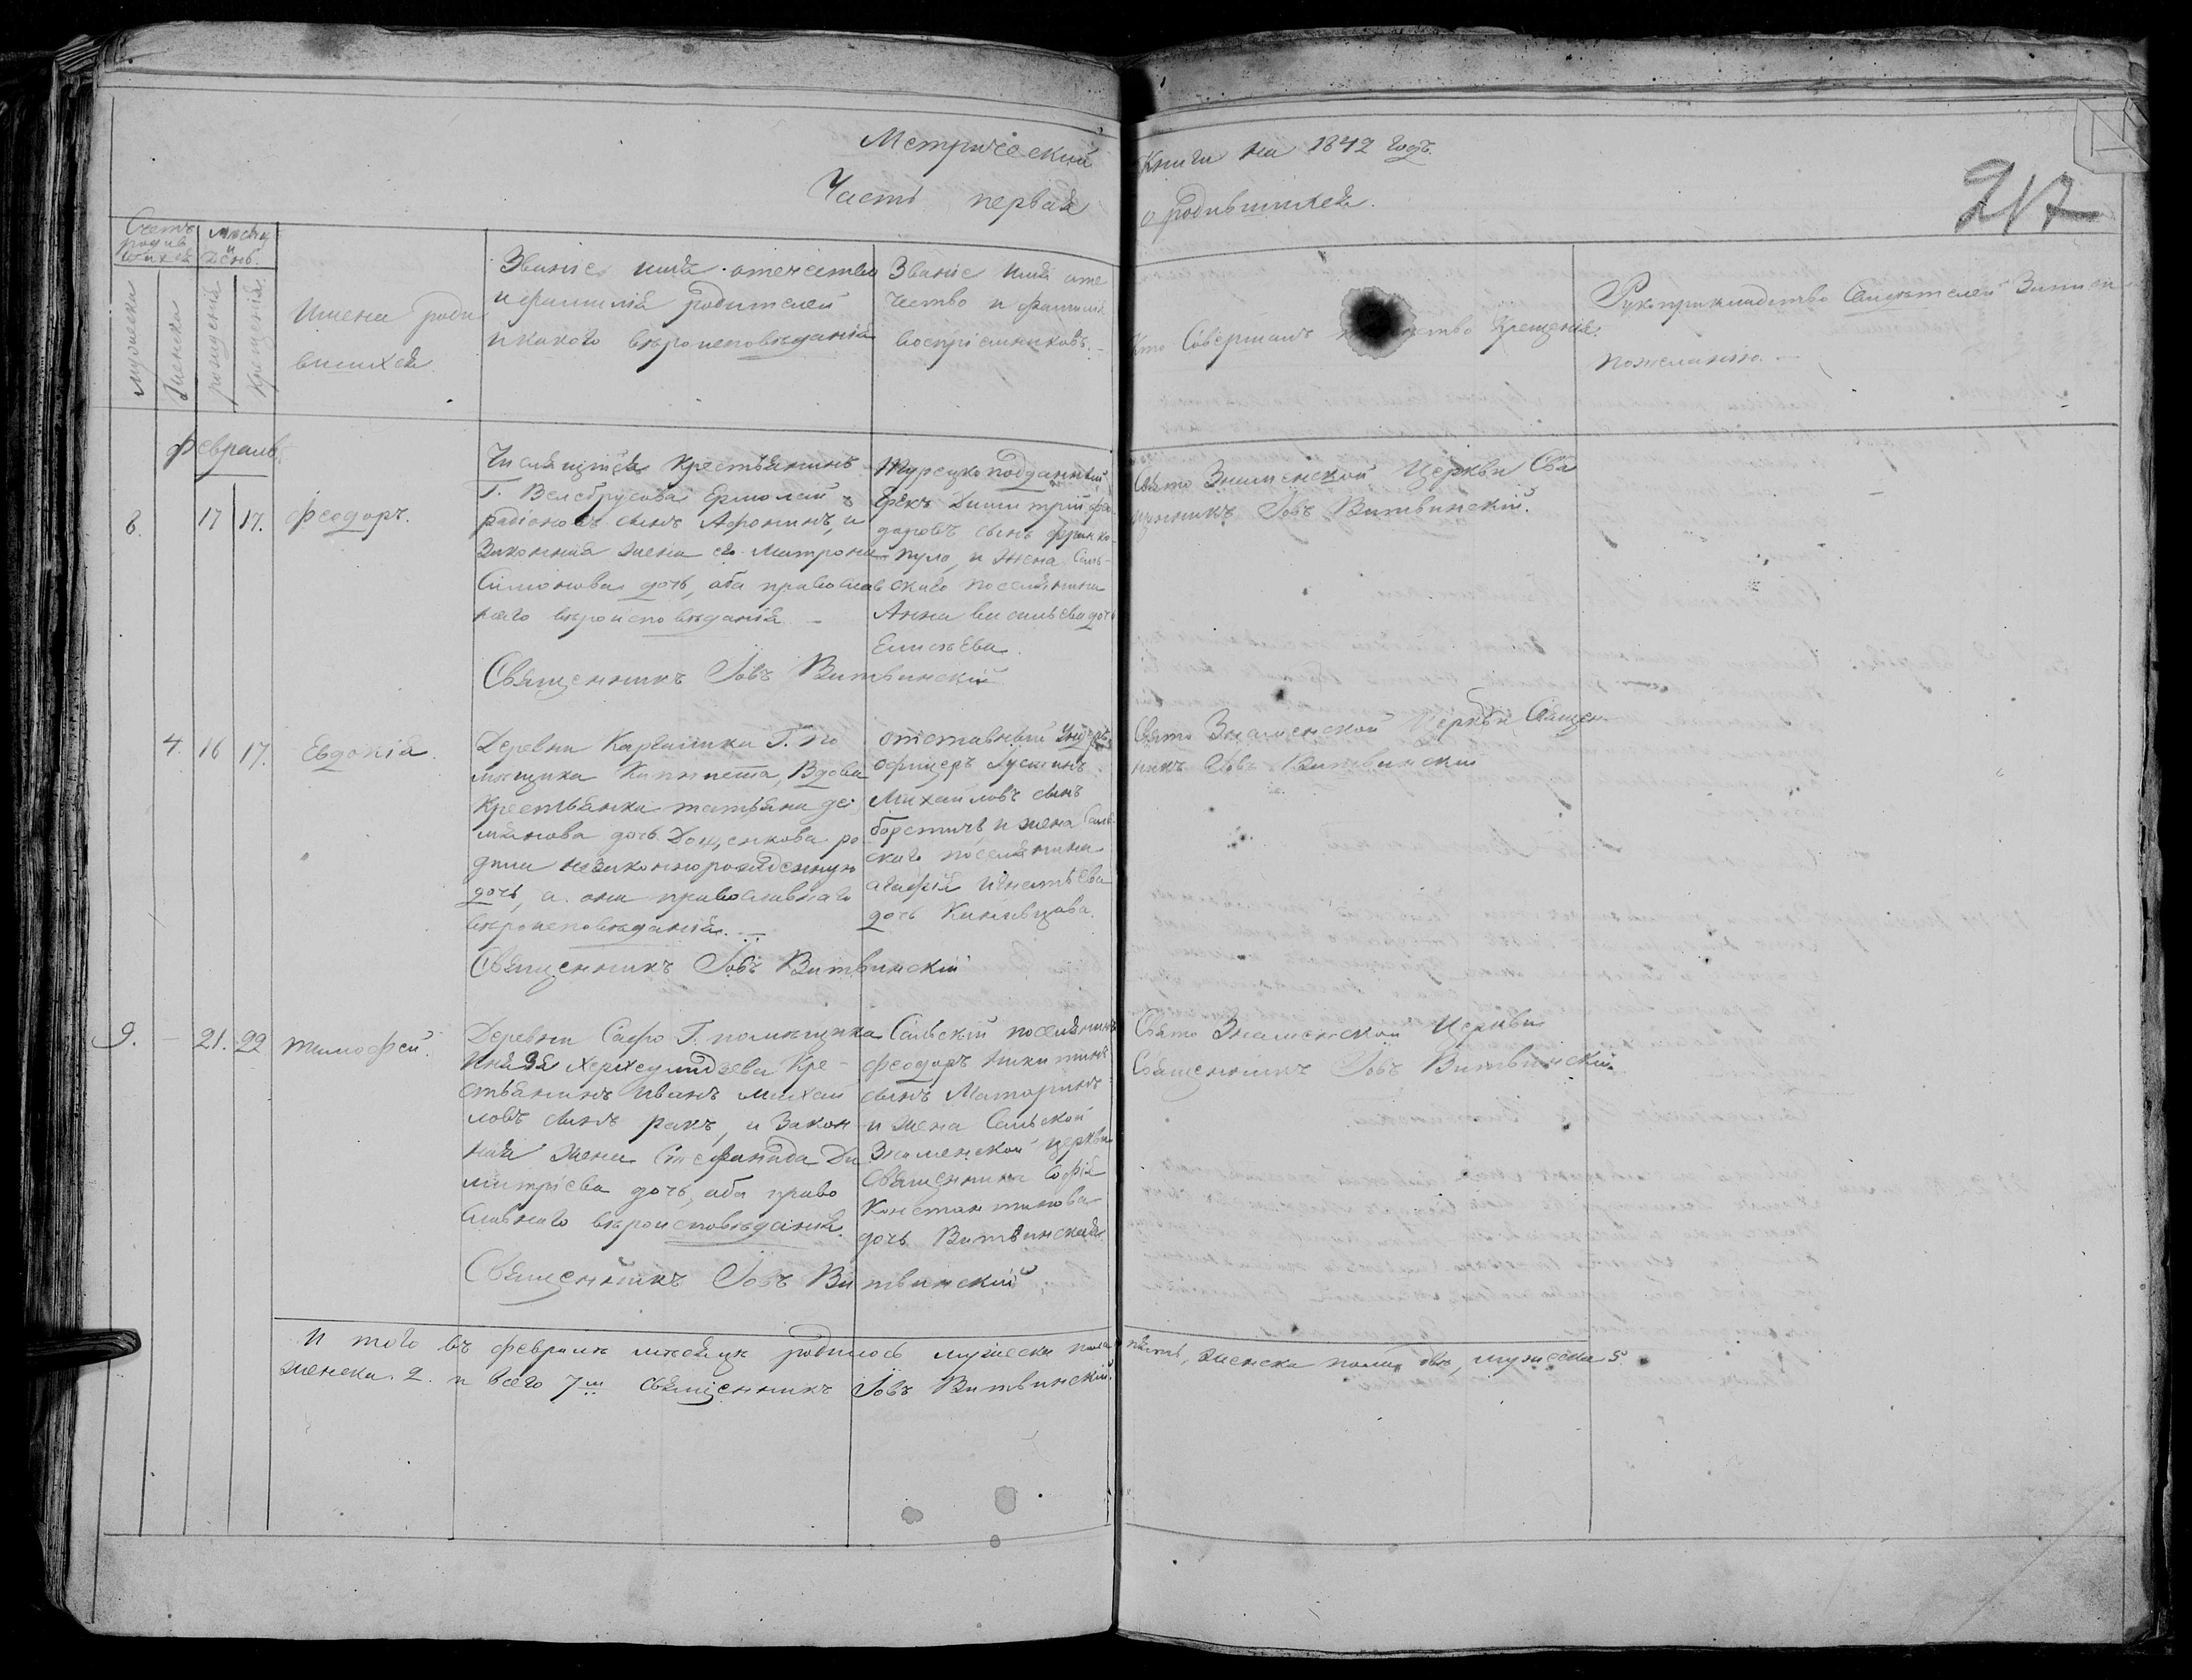 Метрической
Часть первая
Книги на 1842 годъ.
о родившихся.
217
Счетъ
родив
шихся
Месяц
и
День.
мужеска
женска
рожденія
крещенія
Имена роди
вшихся
Званіе имя отечество
и фамилія родителей
и какого вѣроисповѣданія
Званіе имя оте
чество и фамилія
воспріемниковъ.
Кто Совершалъ крещенія.
Рукоприкладство Свидѣтелей Записи
по желанію.
Февраль
8.
17
17.
Феодоръ.
Числящійся крестьянинъ
Г. Белебрусова Ермолай
Радіоновъ сынъ Афонинъ, и
Законная жена его Матрона
Симонова дочь, оба православ
наго вѣроисповѣданія
Священникъ Іовъ Витвинскій
Турецко подданный
Грекъ Димитрій Фе
доровъ сынъ Франко
пуло, и жена Саль
скаго поселянина
Анна Васильева дочь
Елисѣева
Свято Знаменской Церкви Свя
щенникъ Іовъ Витвинскій.
4.
16
17.
Евдокія.
Деревни Карташки Г. по
мѣщика Каппета, Вдова
Крестьянка татьяна де
мьянова дочь Доценкова ро
дила незаконнорожденную
дочь, а она православнаго
вѣроисповѣданія.
Священникъ Іовъ Витвинскій
отставный Ундеръ
офицеръ Лустинъ
Михайловъ сынъ
борстичъ, и жена Саль
скаго поселянина
агафія Игнатьева
дочь Канивцова.
Свято Знаменской Церкви Священ
никъ Іовъ Витвинскій
9.
-
21.
22
тимофей.
Деревни Сафо Г. помѣщика
Князя Херхеулидзева Кре
стьянинъ Иванъ Михай
ловъ сынъ Ракъ, и Закон
ная жена Стефанида Ди
митріева дочь, оба право
славнаго вѣроисповѣданія.
Священникъ Іовъ Витвинскій
Сальскій поселянинъ
Феодоръ Никитинъ
сынъ Маторинъ
и жена Сальской
Знаменской церкви
Священника Софія
Константинова
дочь Витвинская
Свято Знаменской Церкви
Священникъ Іовъ Витвинскій.
И того въ февралѣ мѣсяцѣ родилось мужеска пола пять, женска пола двѣ, мужеска 5.
женска. 2. и всего 7мь священникъ Іовъ Витвинскій.